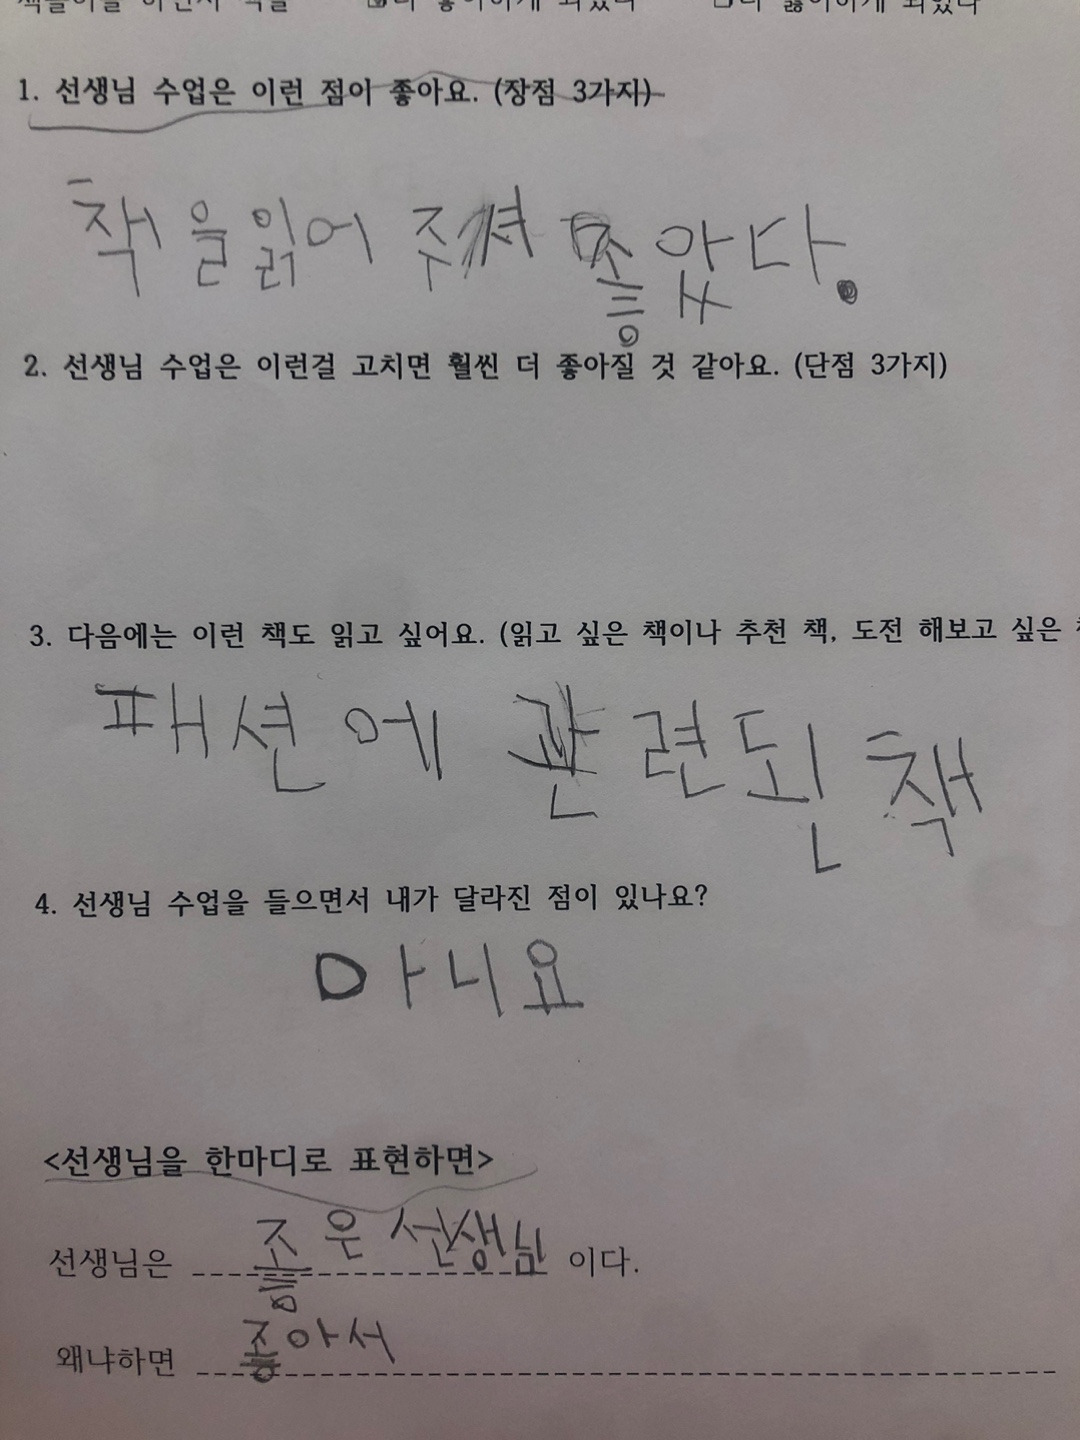 책놀이를 하면서 책을 더 좋아하게 되었다 더 싫어하게 되었다
1. 선생님 수업은 이런 점이 좋아요. (장점 3가지)
책을 읽어 주셔 좋았다.
2. 선생님 수업은 이런걸 고치면 훨씬 더 좋아질 것 같아요. (단점 3가지)
3. 다음에는 이런 책도 읽고 싶어요. (읽고 싶은 책이나 추천 책, 도전 해보고 싶은
패션에 관련된 책
4. 선생님 수업을 들으면서 내가 달라진 점이 있나요?
아니요
<선생님을 한마디로 표현하면>
선생님은 좋은 선생님 이다.
왜냐하면 좋아서